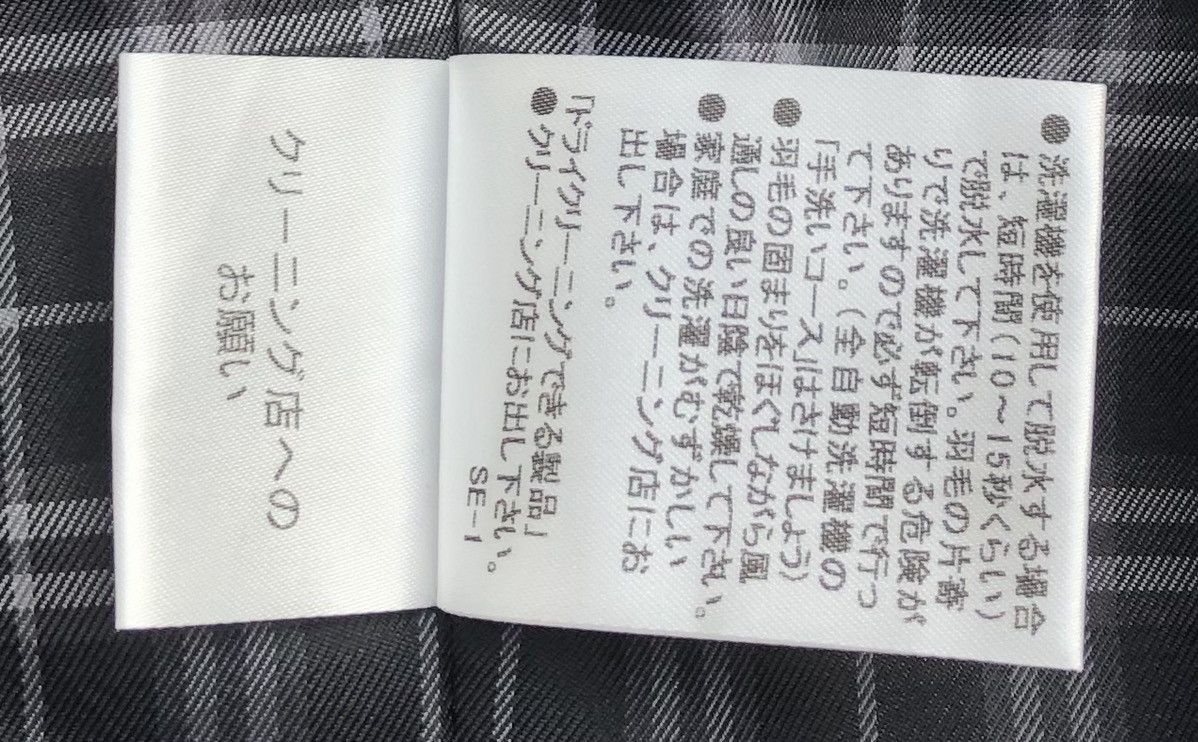 ● 洗濯機を使用して脱水する場合
は、短時間(10～15秒くらい)
で脱水して下さい。羽毛の片寄
りで洗濯機が転倒する危険が
ありますので必ず短時間で行っ
て下さい。(全自動洗濯機の
「手洗いコース」はさけましょう)
● 羽毛の固まりをほぐしながら風
通しの良い日陰で乾燥して下さい。
● 家庭での洗濯がむずかしい
場合は、クリーニング店にお
出し下さい。
「ドライクリーニングできる製品」
● クリーニング店にお出し下さい。
SE-1
クリーニング店への
お願い